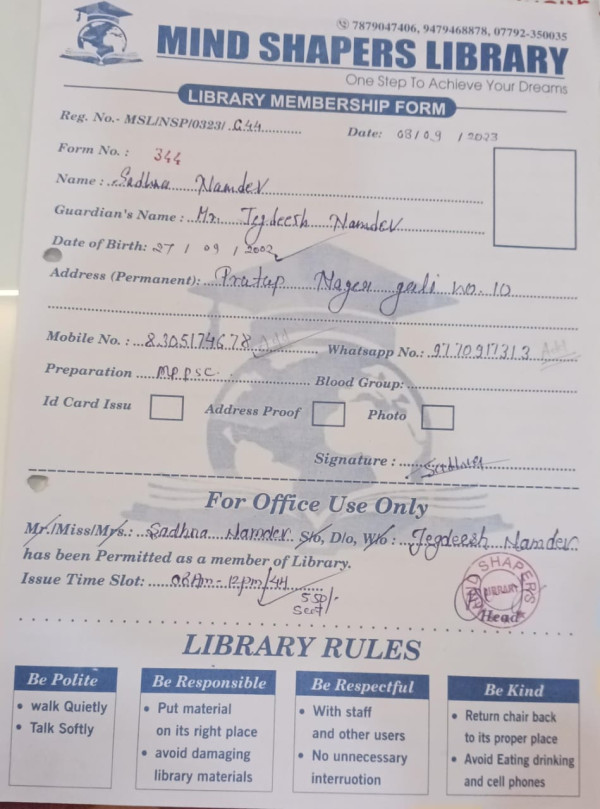 7879047406, 9479468878, 07792-350035
MIND SHAPERS LIBRARY
One Step To Achieve Your Dreams
LIBRARY MEMBERSHIP FORM
Reg. No.- MSL/NSP/0323/ C44
Date: 08/09/2023
Form No. : 344
Name : Sadhna Namdev
Guardian's Name : Mr. Jegdeesh Namdev
Date of Birth: 27/09/2002
Address (Permanent): Pratap Nager gali no. 10
Mobile No. : 8305174678 Whatsapp No.: 9770917313
Preparation mppsc. Blood Group:
Id Card Issu Address Proof Photo
Signature : Sadhna
For Office Use Only
Mr./Miss/Mrs.: Sadhna Namdev S/o, D/o, W/o : Jegdeesh Namdev
has been Permitted as a member of Library.
Issue Time Slot: 08 Am - 12 pm / 4H
550/-
SHAPERS
LIBRARY
Head
LIBRARY RULES
Be Polite
• walk Quietly
• Talk Softly
Be Responsible
• Put material
on its right place
• avoid damaging
library materials
Be Respectful
• With staff
and other users
• No unnecessary
interruotion
Be Kind
• Return chair back
to its proper place
• Avoid Eating drinking
and cell phones